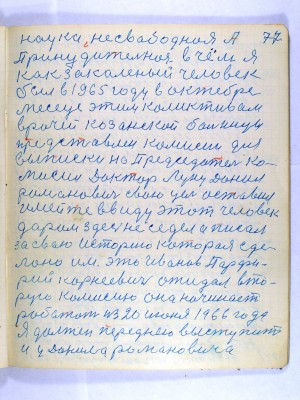 наука, не свободная А 77
Принудителноя в чём я
как закаленый человек
был в 1965 году в октебре
месеце этим коликтивам
врочей козанской болници
представлин комисии для
выписки но Председател ко-
мисии Доктор Лунц Данил
романович свою цел оставил
имейте ввиду этот человек
даром здес не седел а писал
за сваю историю которая сде-
лоно им. это Иванов Парфи-
рий корнеевич ожидал вто-
рую комисию она начинает
роботат из 20 июня 1966 года
Я должен переднею выступит
и у Данила романовича